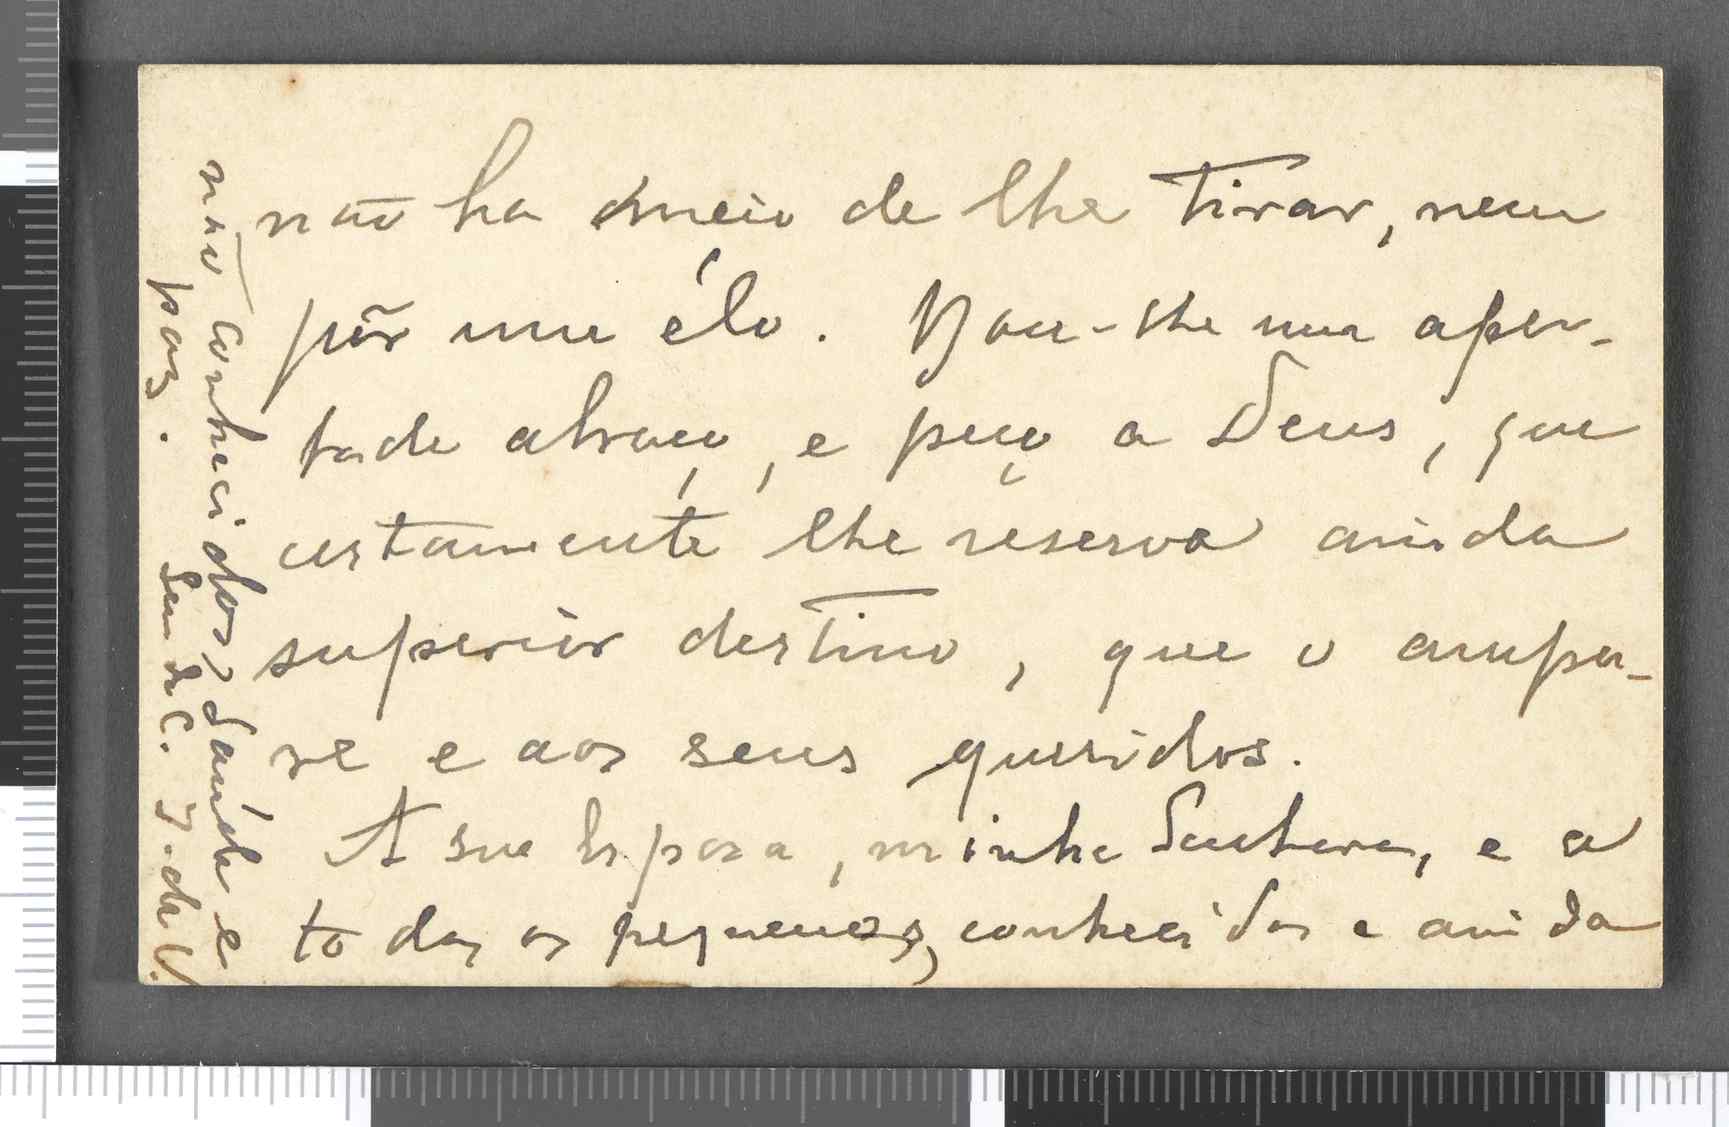 não ha meio de lhe tirar, nem
pôr um élo. Dou-lhe um aper-
tado abraço, e peço a Deus, que
certamente lhe reserva ainda
superior destino, que o ampa-
re e aos seus queridos.
A sua Esposa, minha Senhora, e a
todos os pequenos, conhecidos e ainda
não conhecidos, saúde e
paz. Seu de C. J. de V.